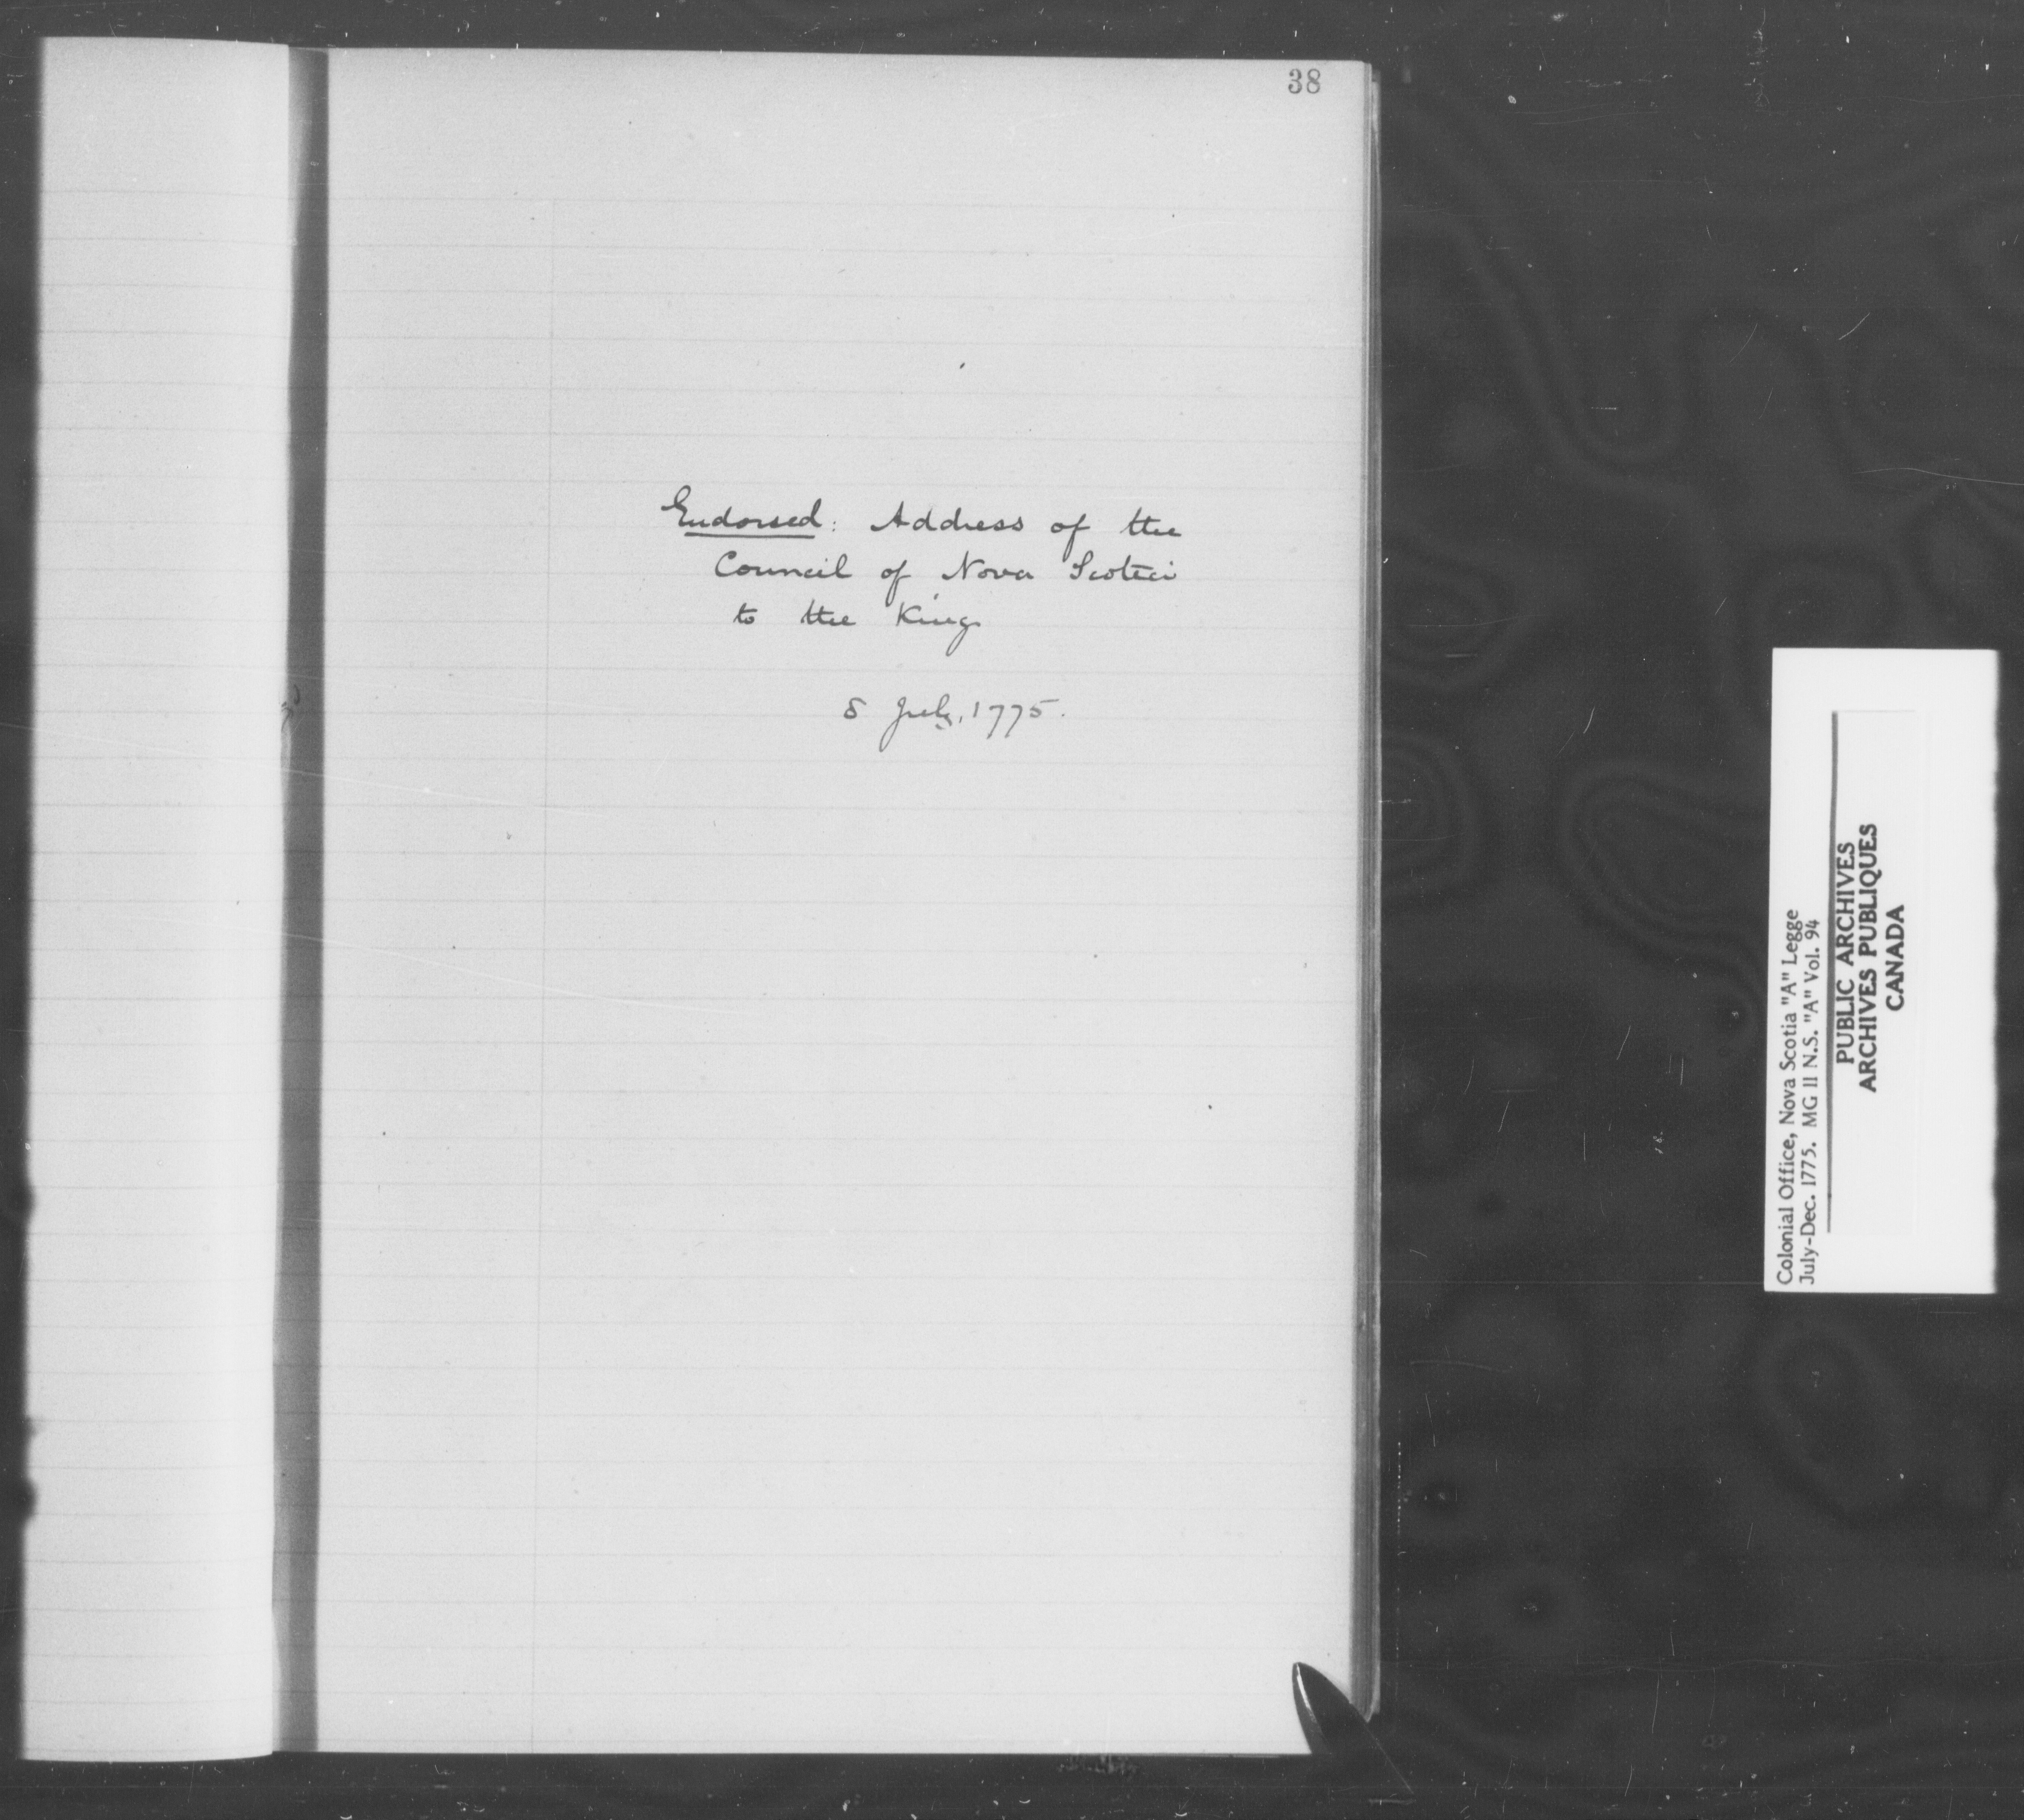 38
Endorsed: Address of the
Council of Nova Scotia
to the King
8 July, 1775.
Colonial Office, Nova Scotia "A" Legge
July-Dec. 1775. MG 11 N.S. "A" Vol. 94
PUBLIC ARCHIVES
ARCHIVES PUBLIQUES
CANADA